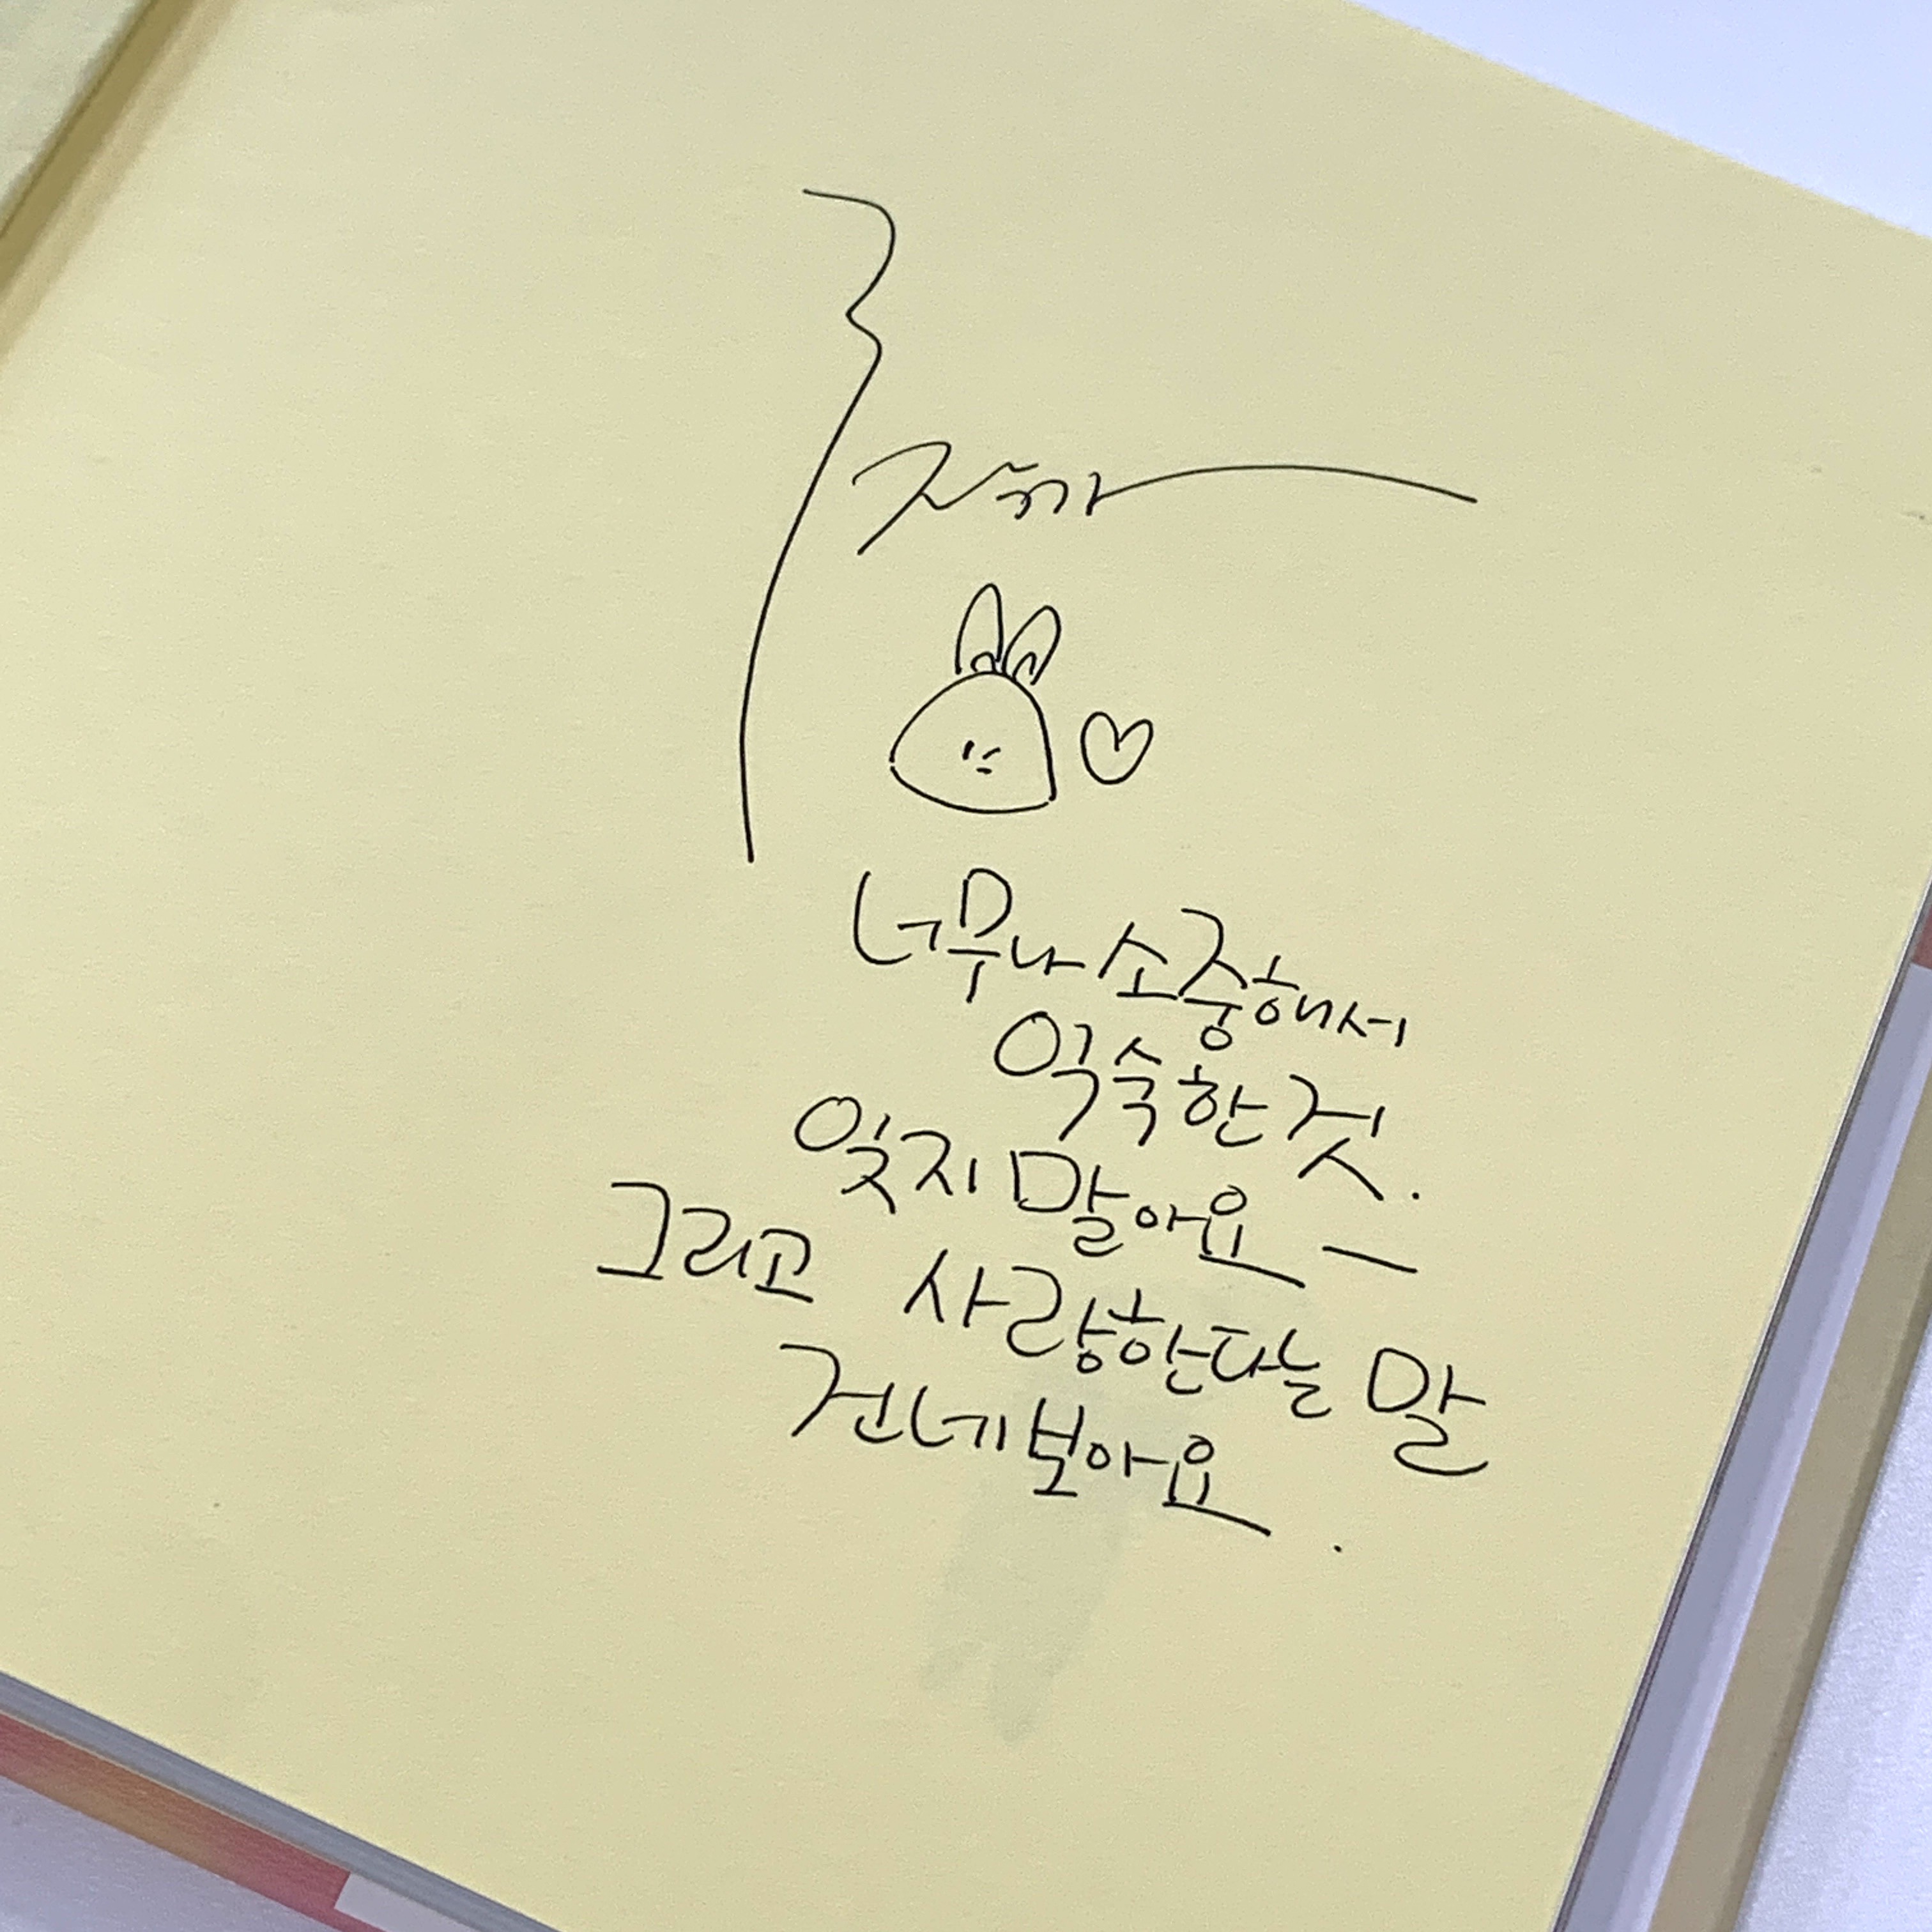 너무나 소중해서
익숙한 것.
잊지 말아요 —
그리고 사랑한다는 말
건네보아요.